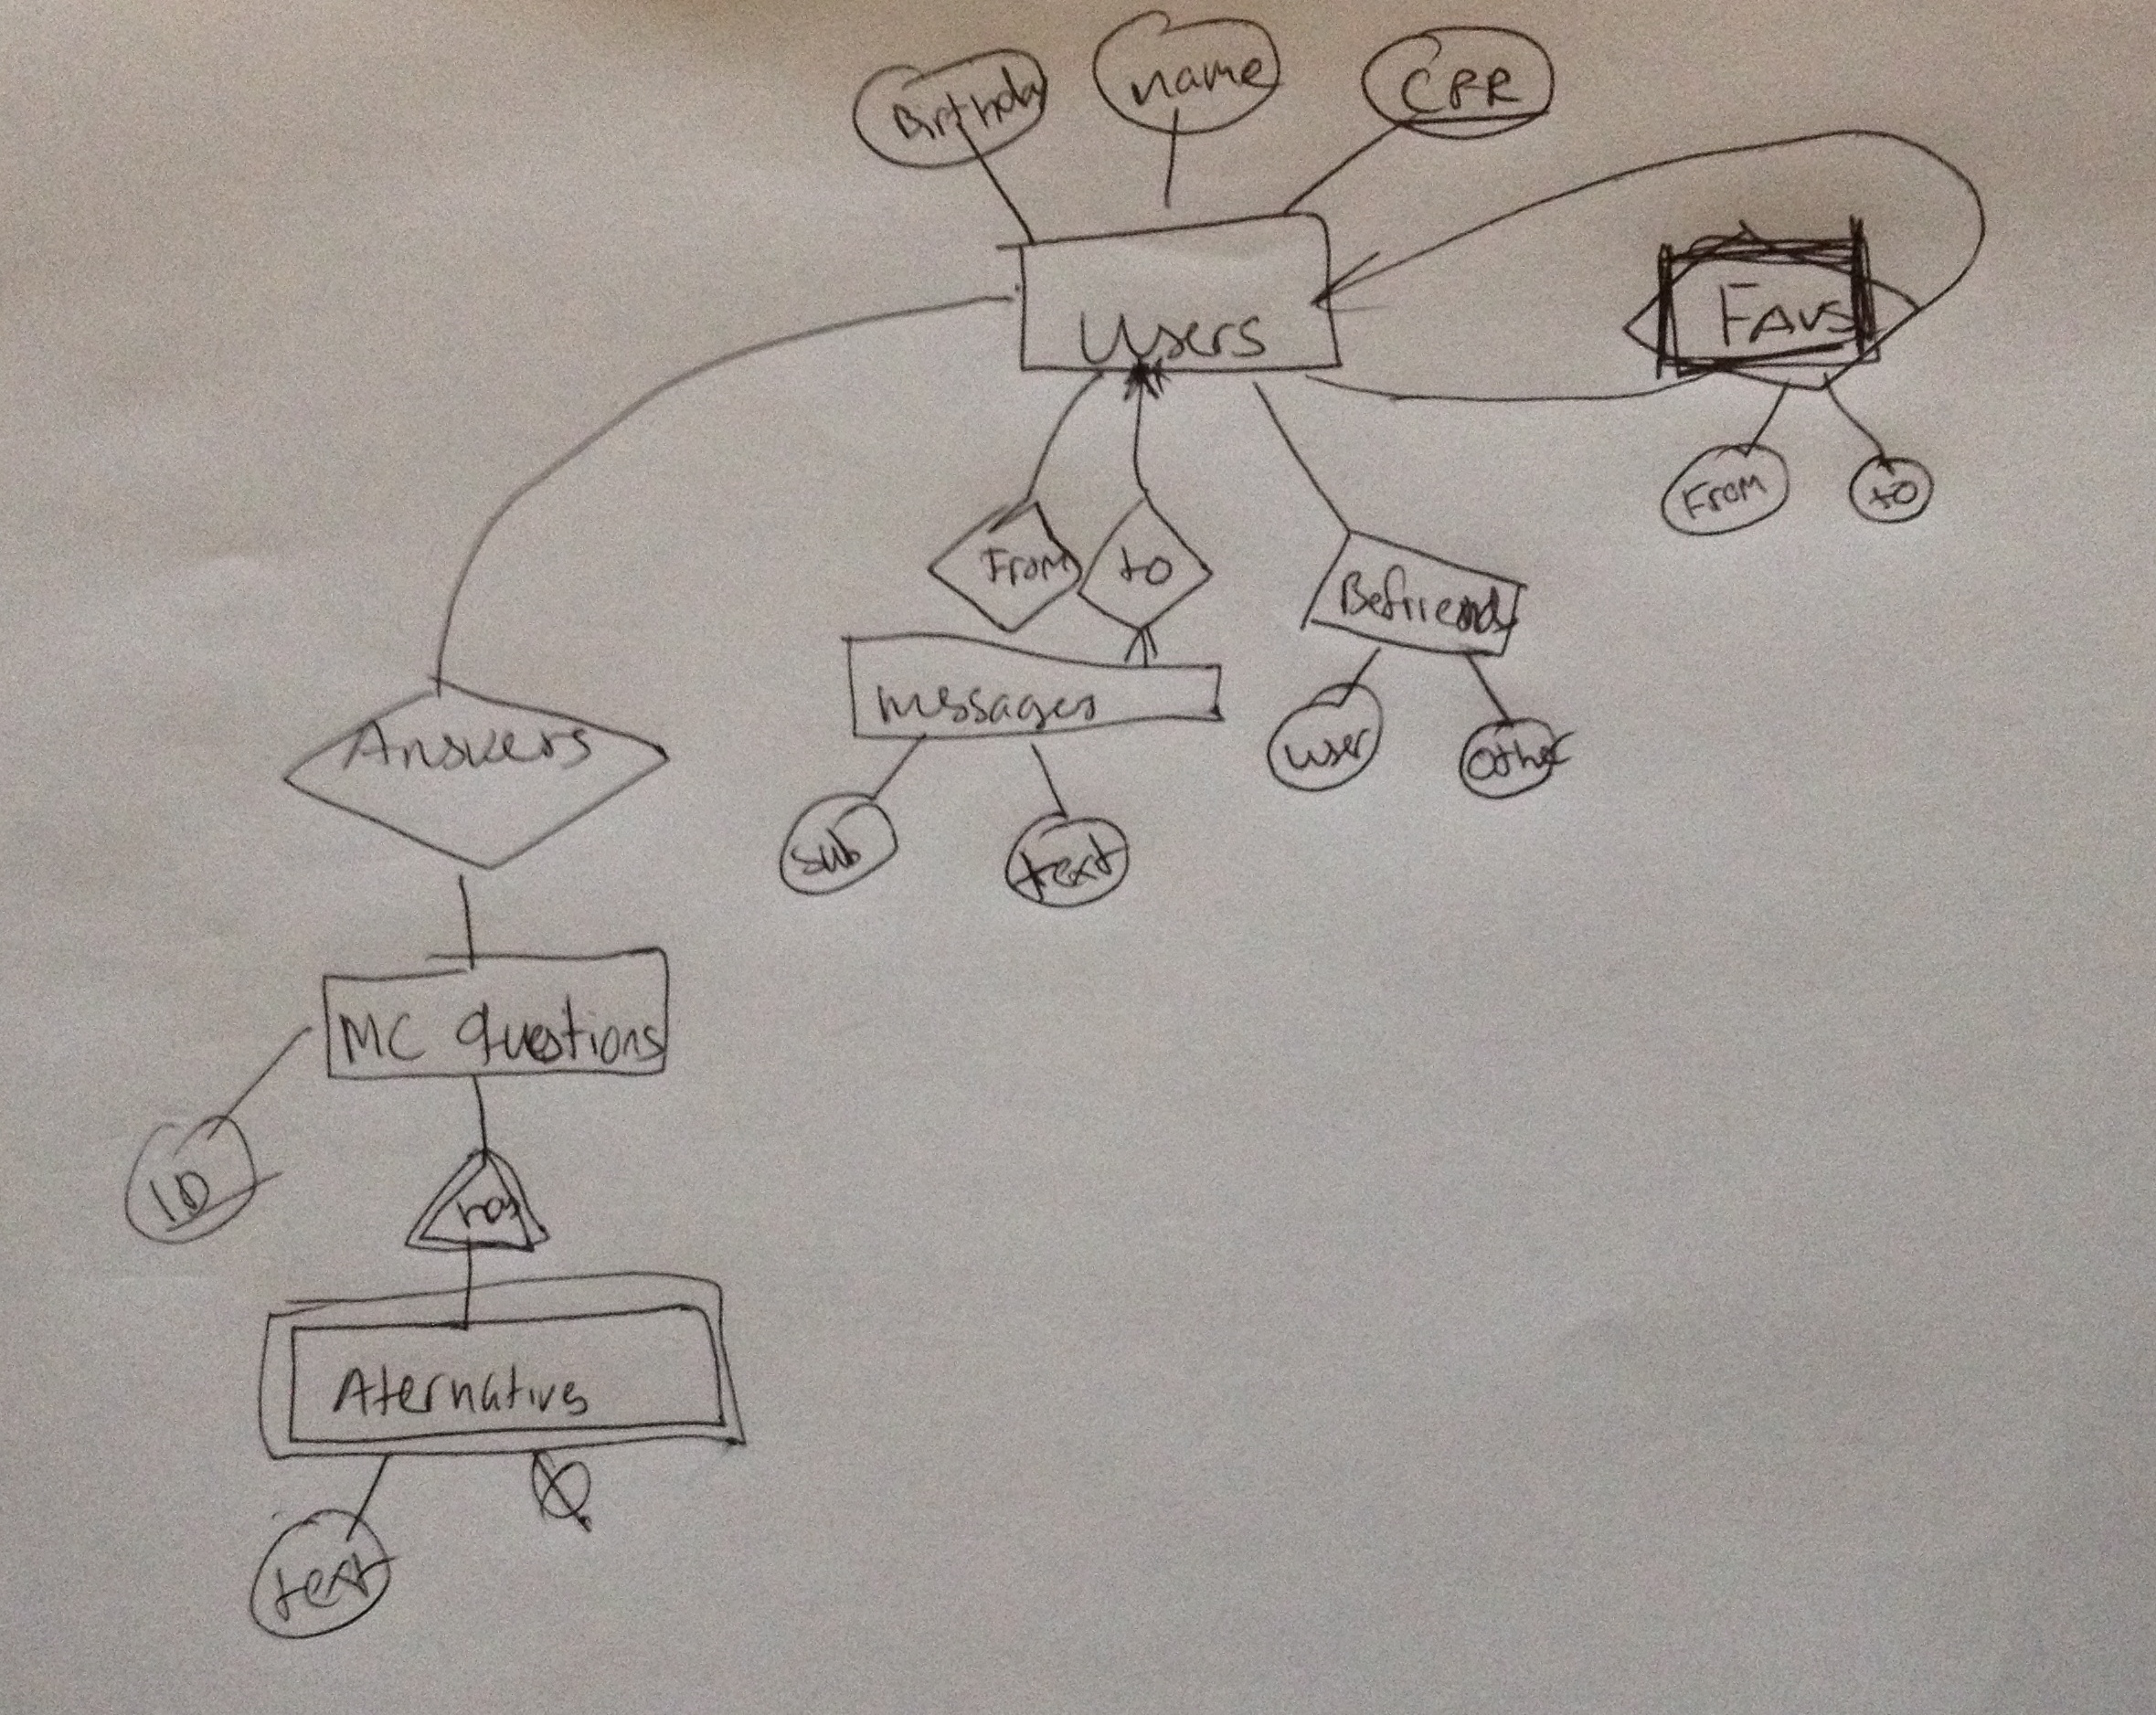 Birthday
name
CPR
Users
Favs
From
to
From
to
Befriends
messages
user
other
Answers
sub
text
MC questions
ID
has
Aternativs
text